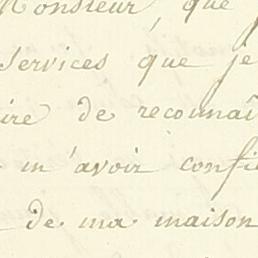 Monsieur, que
services que je
de reconnaî
m'avoir confi
de ma maison